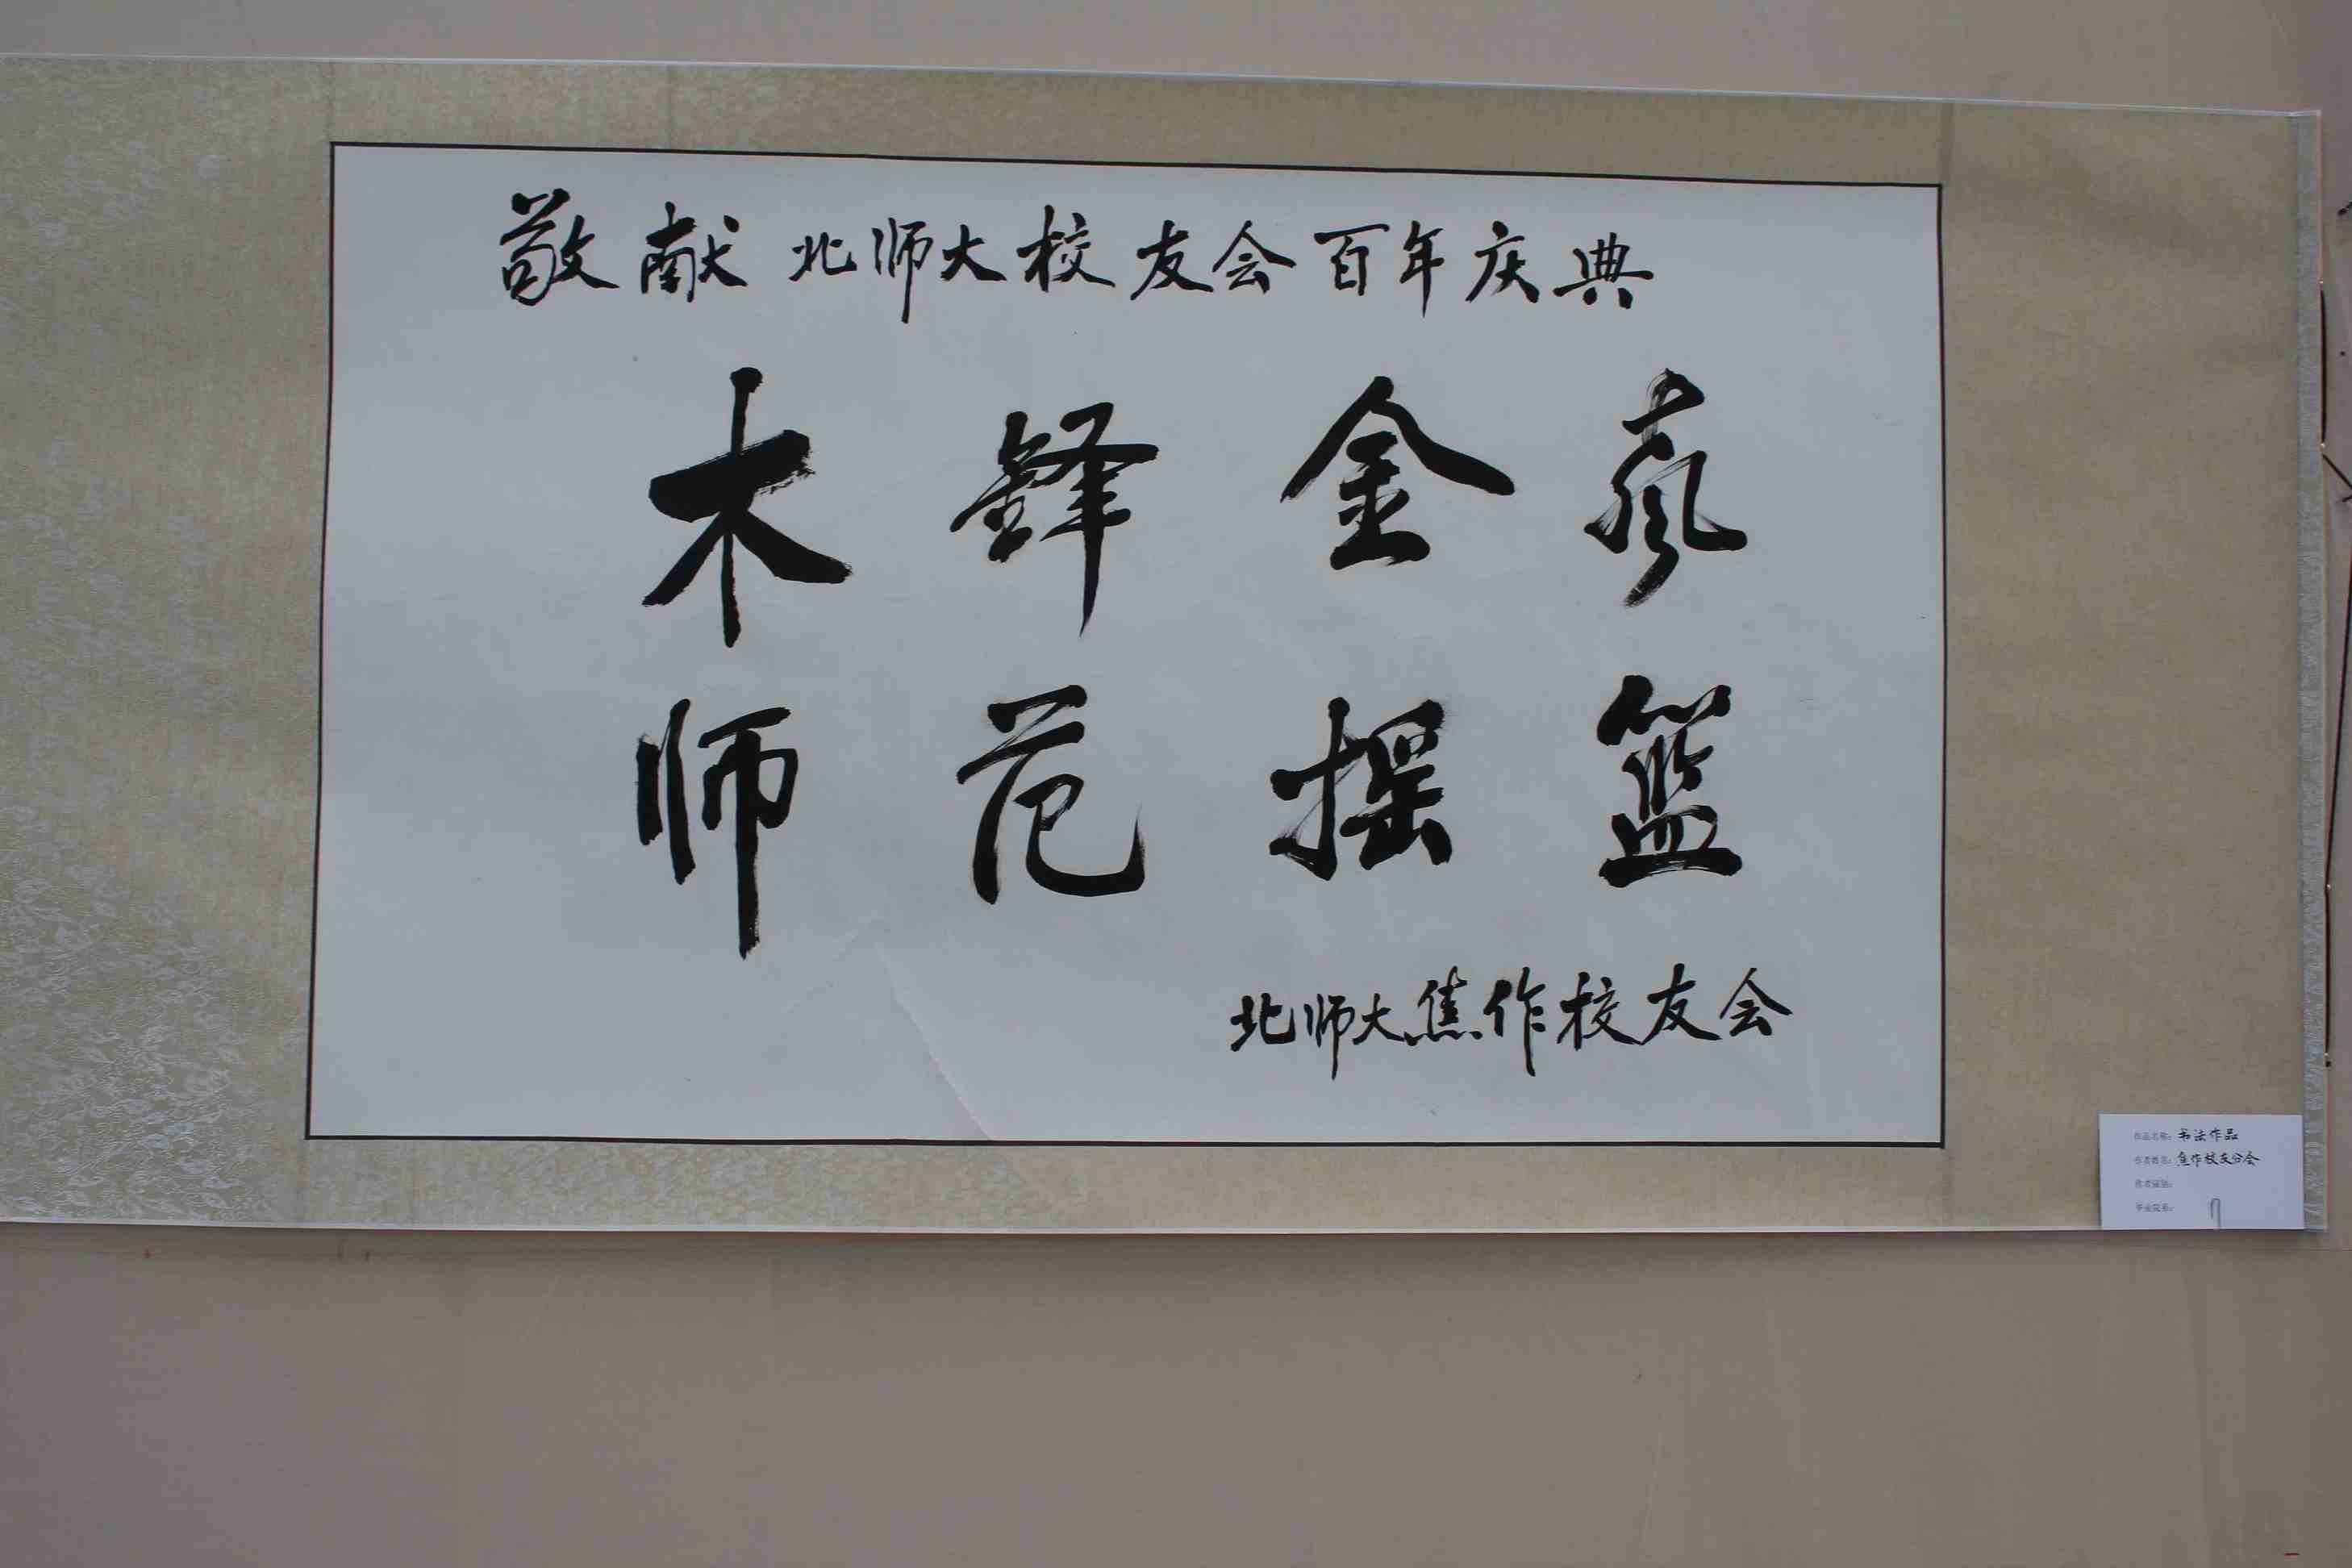 敬献北师大校友会百年庆典
木铎金声
师范摇篮
北师大焦作校友会
作品名称：书法作品
作者姓名：焦作校友分会
作者届别：
毕业院系：